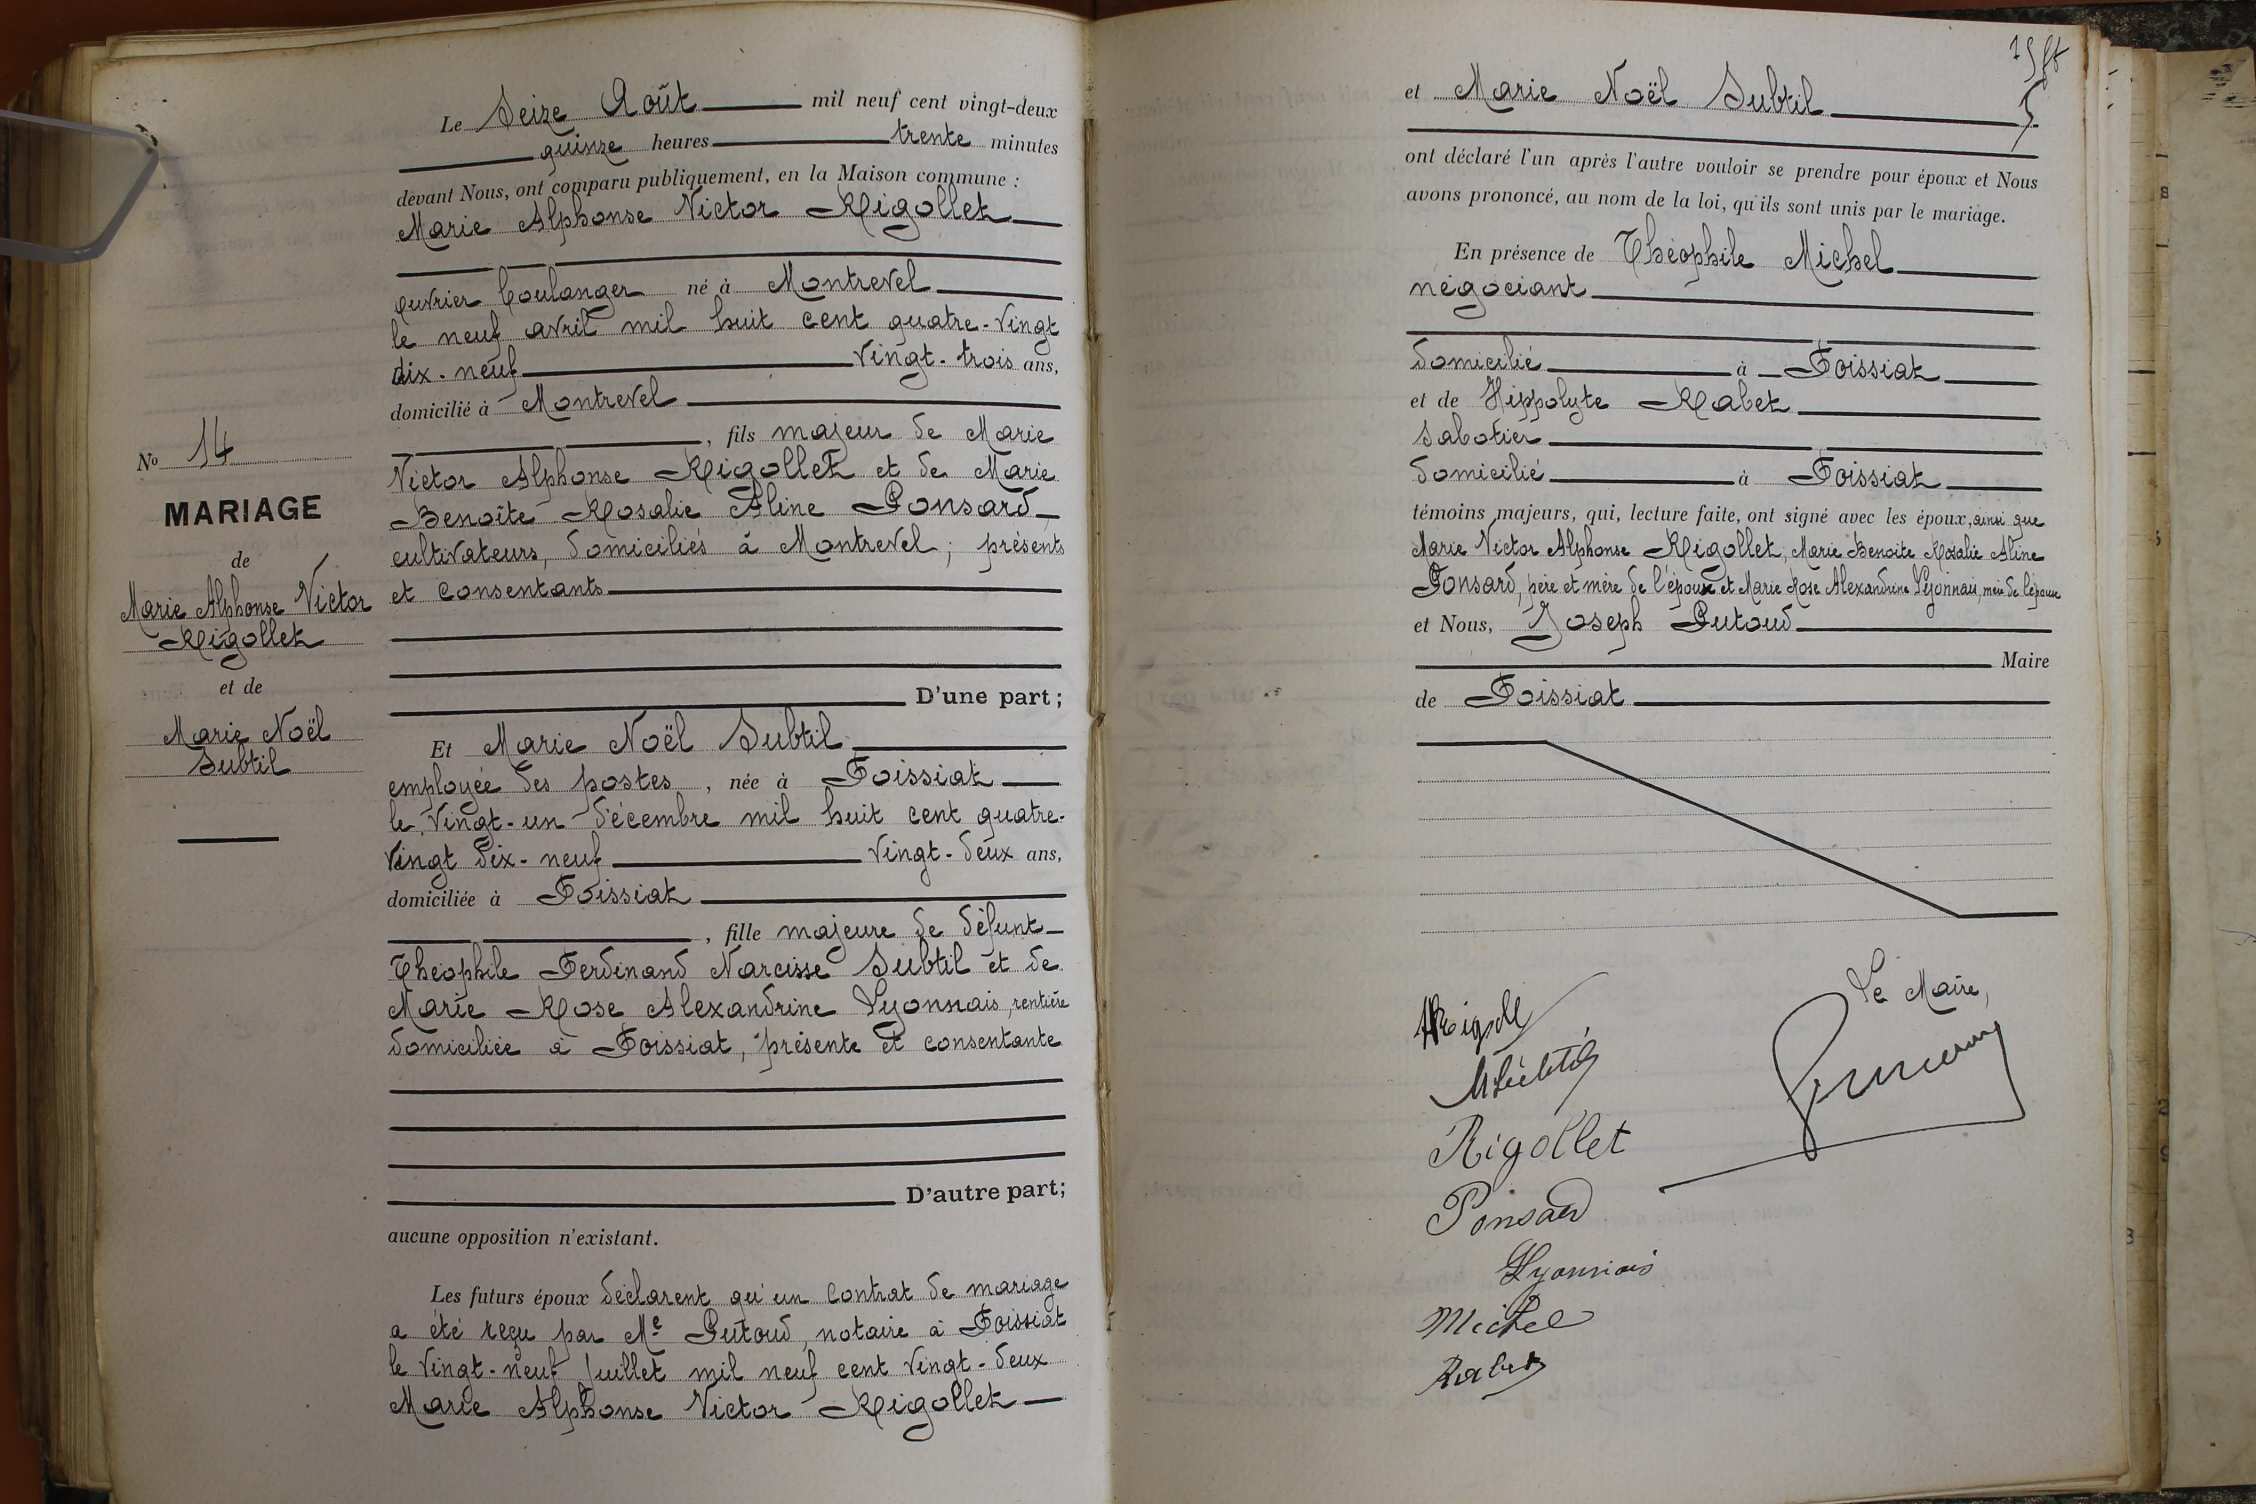 Le Seize Août mil neuf cent vingt-deux
quinze heures trente minutes
devant Nous, ont comparu publiquement, en la Maison commune :
Marie Alphonse Victor Rigollet
ouvrier boulanger né à Montrevel
le neuf avril mil huit cent quatre-vingt
dix-neuf vingt-trois ans,
domicilié à Montrevel
, fils majeur de Marie
Victor Alphonse Rigollet et de Marie
Benoîte Rosalie Aline Ponsard
cultivateurs, domiciliés à Montrevel ; présents
et consentants
D'une part ;
Et Marie Noël Subtil
employée des postes, née à Foissiat
le vingt-un décembre mil huit cent quatre-
vingt dix-neuf vingt-deux ans,
domiciliée à Foissiat
, fille majeure de défunt
Théophile Ferdinand Narcisse Subtil et de
Marie Rose Alexandrine Lyonnais, rentière
domiciliée à Foissiat, présente et consentante
D'autre part ;
aucune opposition n'existant.
Les futurs époux déclarent qu'un contrat de mariage
a été reçu par Me Putoud, notaire à Foissiat
le vingt-neuf juillet mil neuf cent vingt-deux
Marie Alphonse Victor Rigollet
No 14
MARIAGE
de
Marie Alphonse Victor
Rigollet
et de
Marie Noël
Subtil
et Marie Noël Subtil
ont déclaré l'un après l'autre vouloir se prendre pour époux et Nous
avons prononcé, au nom de la loi, qu'ils sont unis par le mariage.
En présence de Théophile Michel
négociant
domicilié à Foissiat
et de Hippolyte Rabet
sabotier
domicilié à Foissiat
témoins majeurs, qui, lecture faite, ont signé avec les époux, ainsi que
Marie Victor Alphonse Rigollet, Marie Benoite Rosalie Aline
Ponsard, père et mère de l'époux et Marie Rose Alexandrine Lyonnais, mère de l'épouse
et Nous, Joseph Putoud
Maire
de Foissiat
Le Maire,
Rigollet
Ponsard
Lyonnais
Michel
Rabet